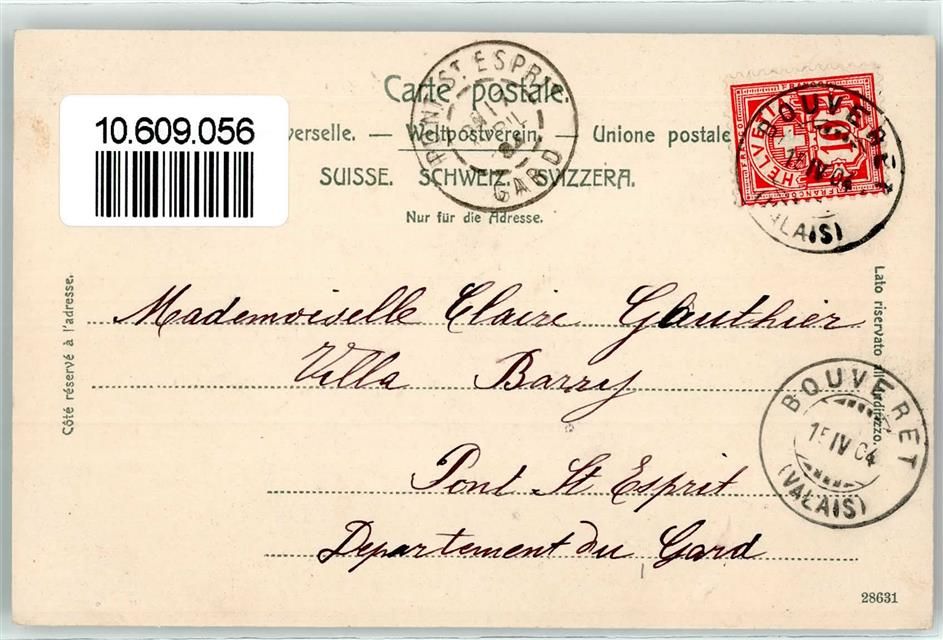 Carte postale.
10.609.056
verselle. — Weltpostverein. — Unione postale
SUISSE. SCHWEIZ. SVIZZERA.
Nur für die Adresse.
PONT ST ESPRIT
AVRIL
04
GARD
HELVETIA
10
FRANCO
BOUVERET
15 IV 04
(VALAIS)
Côté réservé à l'adresse.
Lato riservato all'indirizzo.
Mademoiselle Claire Gauthier
Villa Barry
Pont St Esprit
Departement du Gard
BOUVERET
15 IV 04
(VALAIS)
28631